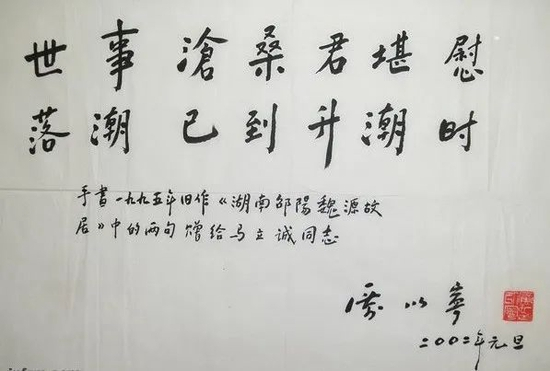 世事滄桑君堪慰
落潮已到升潮时
手書一九九五年旧作《湖南邵陽魏源故
居》中的两句赠给马立诚同志
以寧
二〇〇二年元旦